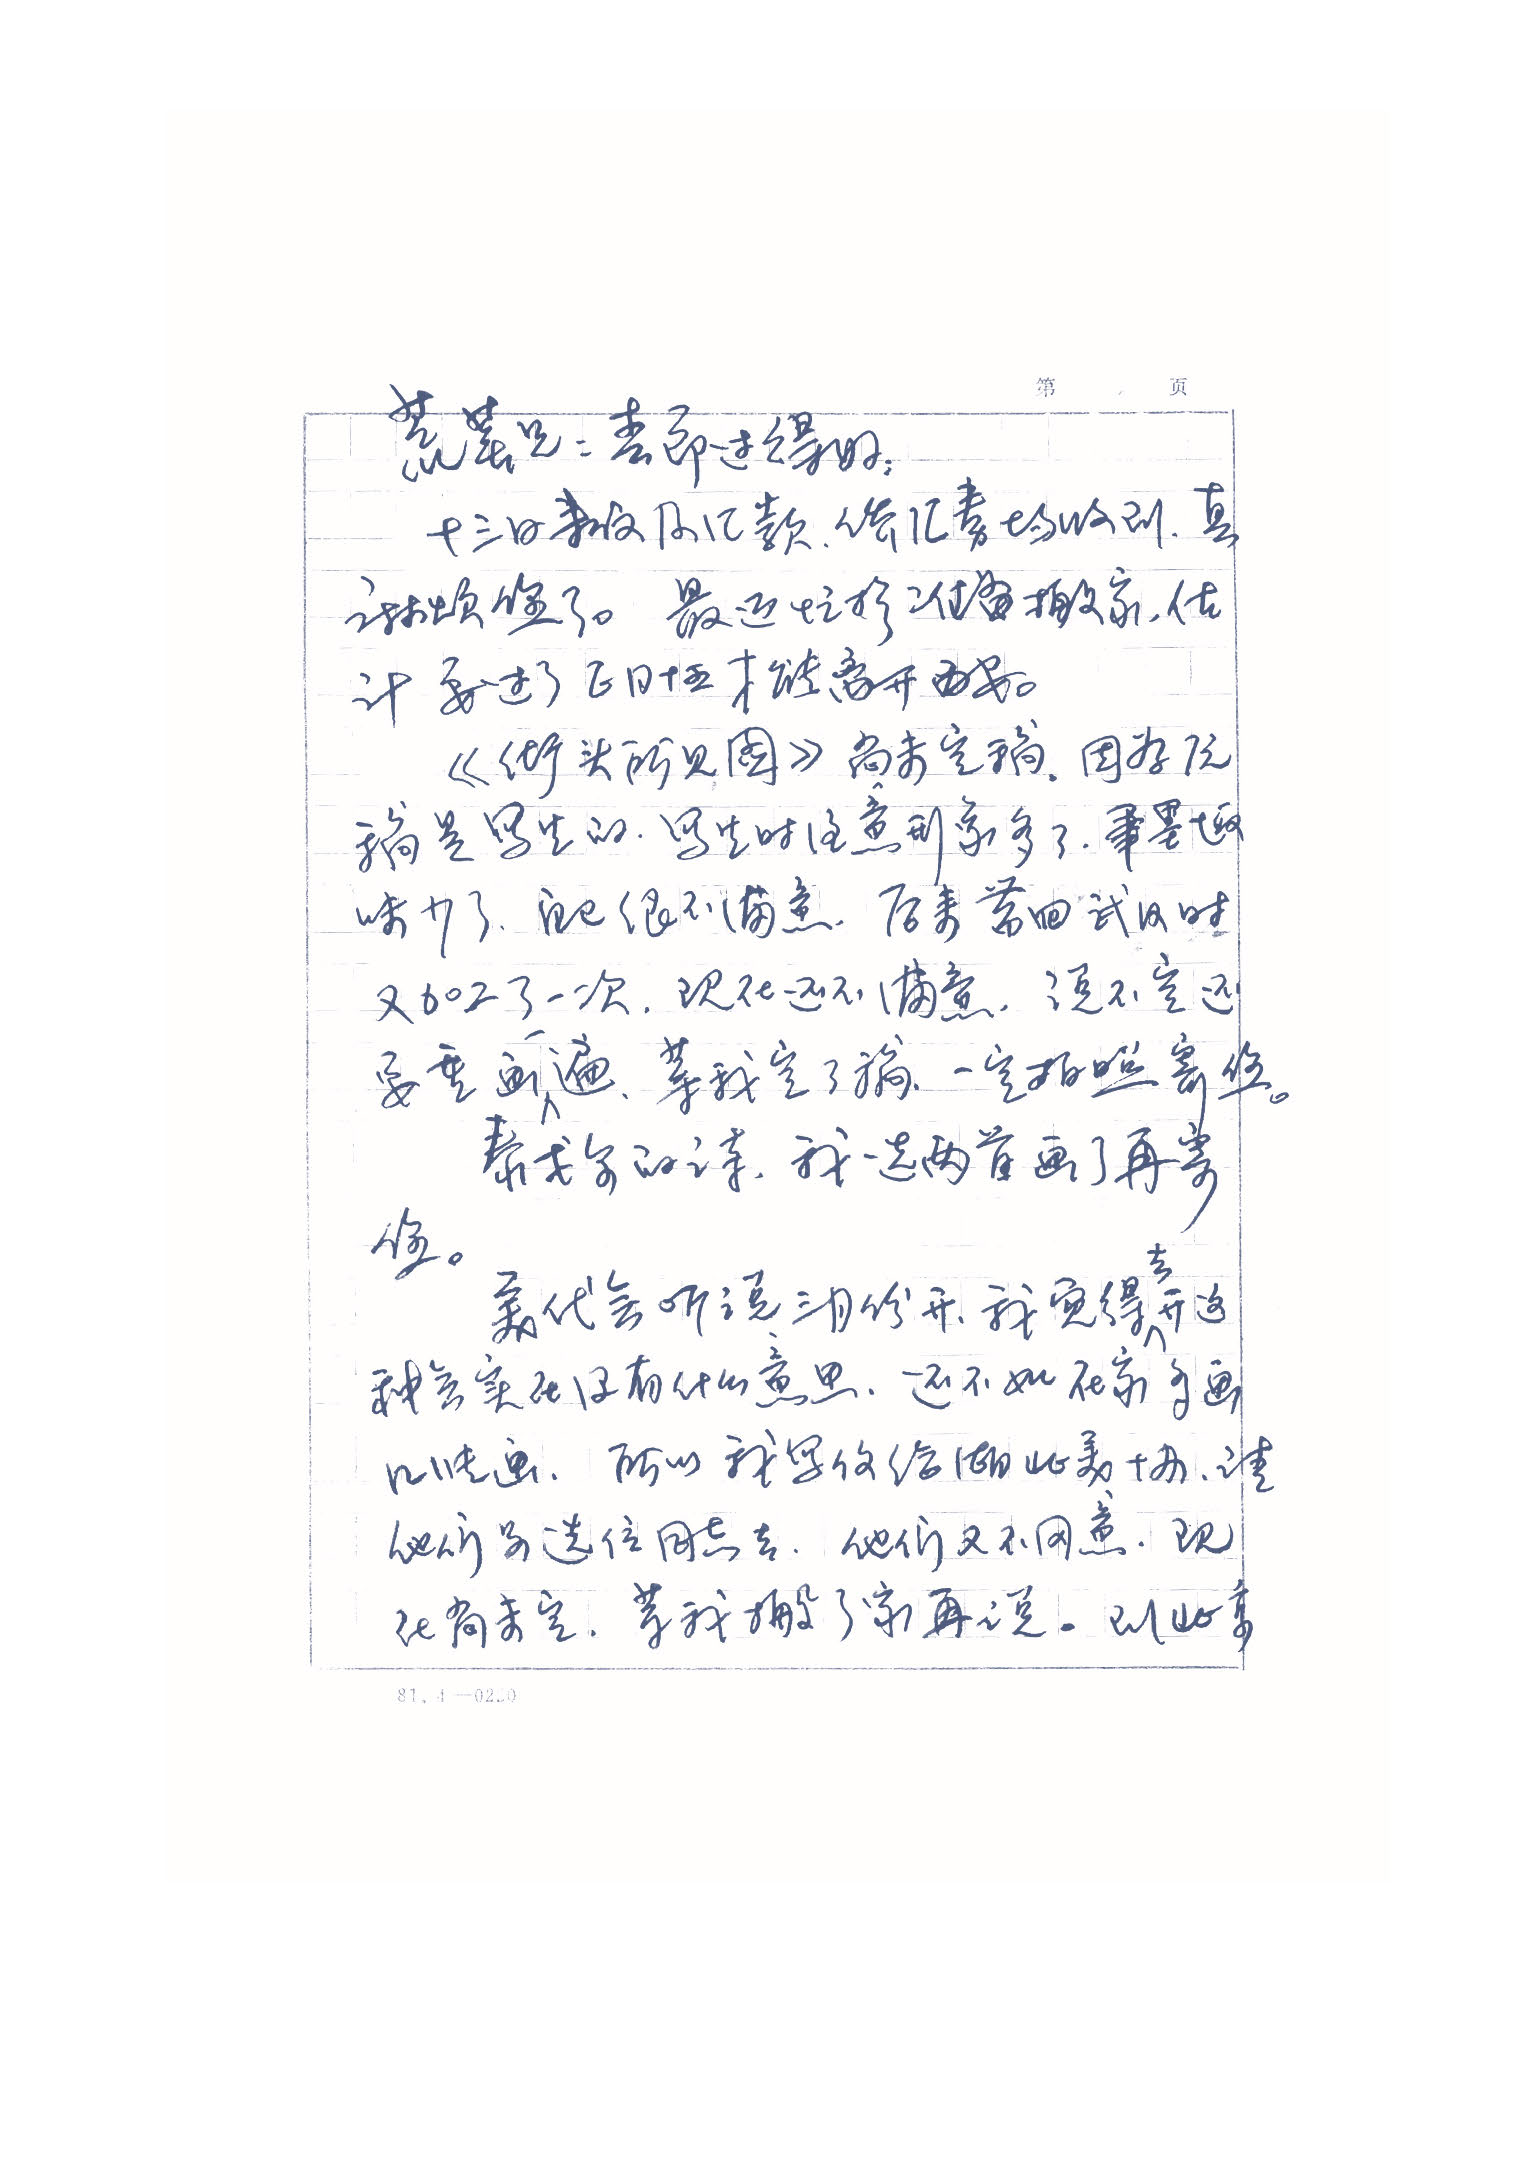 第 页
荒芜兄：春节过得好；
十三日来收及汇款、信汇书均收到、真
麻烦您了。最近忙于准备搬家，估
计要过了正月十五才能离开西安。
《街头所见图》尚未定稿。因为原
稿是写生的．写生时注意形象多了．笔墨趣
味少了、自己很不满意．后来带回武汉时
又加工了一次．现在还不满意．说不定还
要重画一遍、等我定了稿、一定拍照寄您。
泰戈尔的诗、我选两首画了再寄
您。
美代会听说三月份开、我觉得去开这
种会实在没有什么意思．还不如在家多画
几张画．所以我写信给湖北美协、请
他们另选位同志去．他们又不同意．现
在尚未定．等我搬了家再说。到此事
81.4—0220